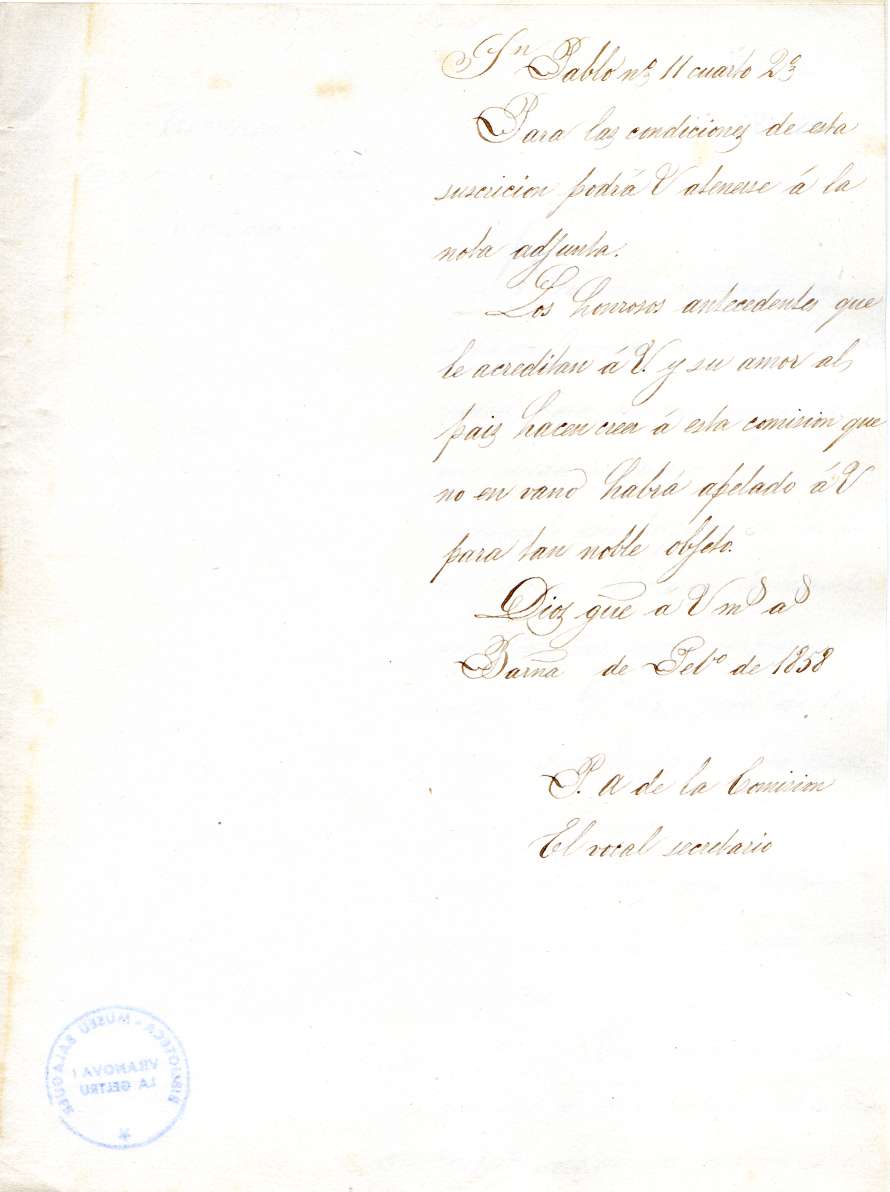 Sn Pablo nº 11 cuarto 2º
Para las condiciones de esta
suscricion podrá V atenerse á la
nota adjunta.
Los honrosos antecedentes que
le acreditan á V. y su amor al
pais hacen creer á esta comision que
no en vano habrá apelado á V
para tan noble objeto.
Dios gue á V ms as
Barna de Febº de 1858
P. A de la Comision
El vocal secretario
BIBLIOTECA - MUSEU BALAGUER
VILANOVA I
LA GELTRÚ